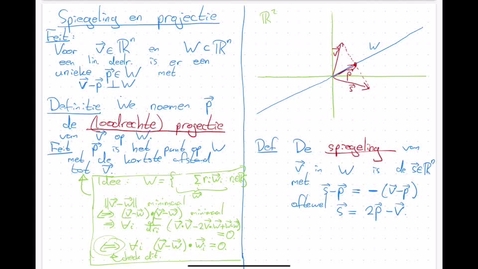 Spiegeling en projectie
Feit:
Voor v⃗ ∈ ℝⁿ en W ⊂ ℝⁿ
een lin deelr. is er een
unieke p⃗ ∈ W met
v⃗-p⃗ ⊥ W
Definitie We noemen p⃗
de (loodrechte) projectie
van v⃗ op W.
Feit p⃗ is het punt op W
met de kortste afstand
tot v⃗.
Idee: W = {
||v⃗-w⃗|| minimaal
⇔ (v⃗-w⃗)•(v⃗-w⃗) minimaal
= 0.
⇔ ∀i (v⃗-w⃗)•w⃗ᵢ = 0.
ℝ²
W
v⃗
p⃗
s⃗
Def De spiegeling van
v⃗ in W is de s⃗ ∈ ℝⁿ
met
s⃗-p⃗ = -(v⃗-p⃗)
oftewel
s⃗ = 2p⃗-v⃗.